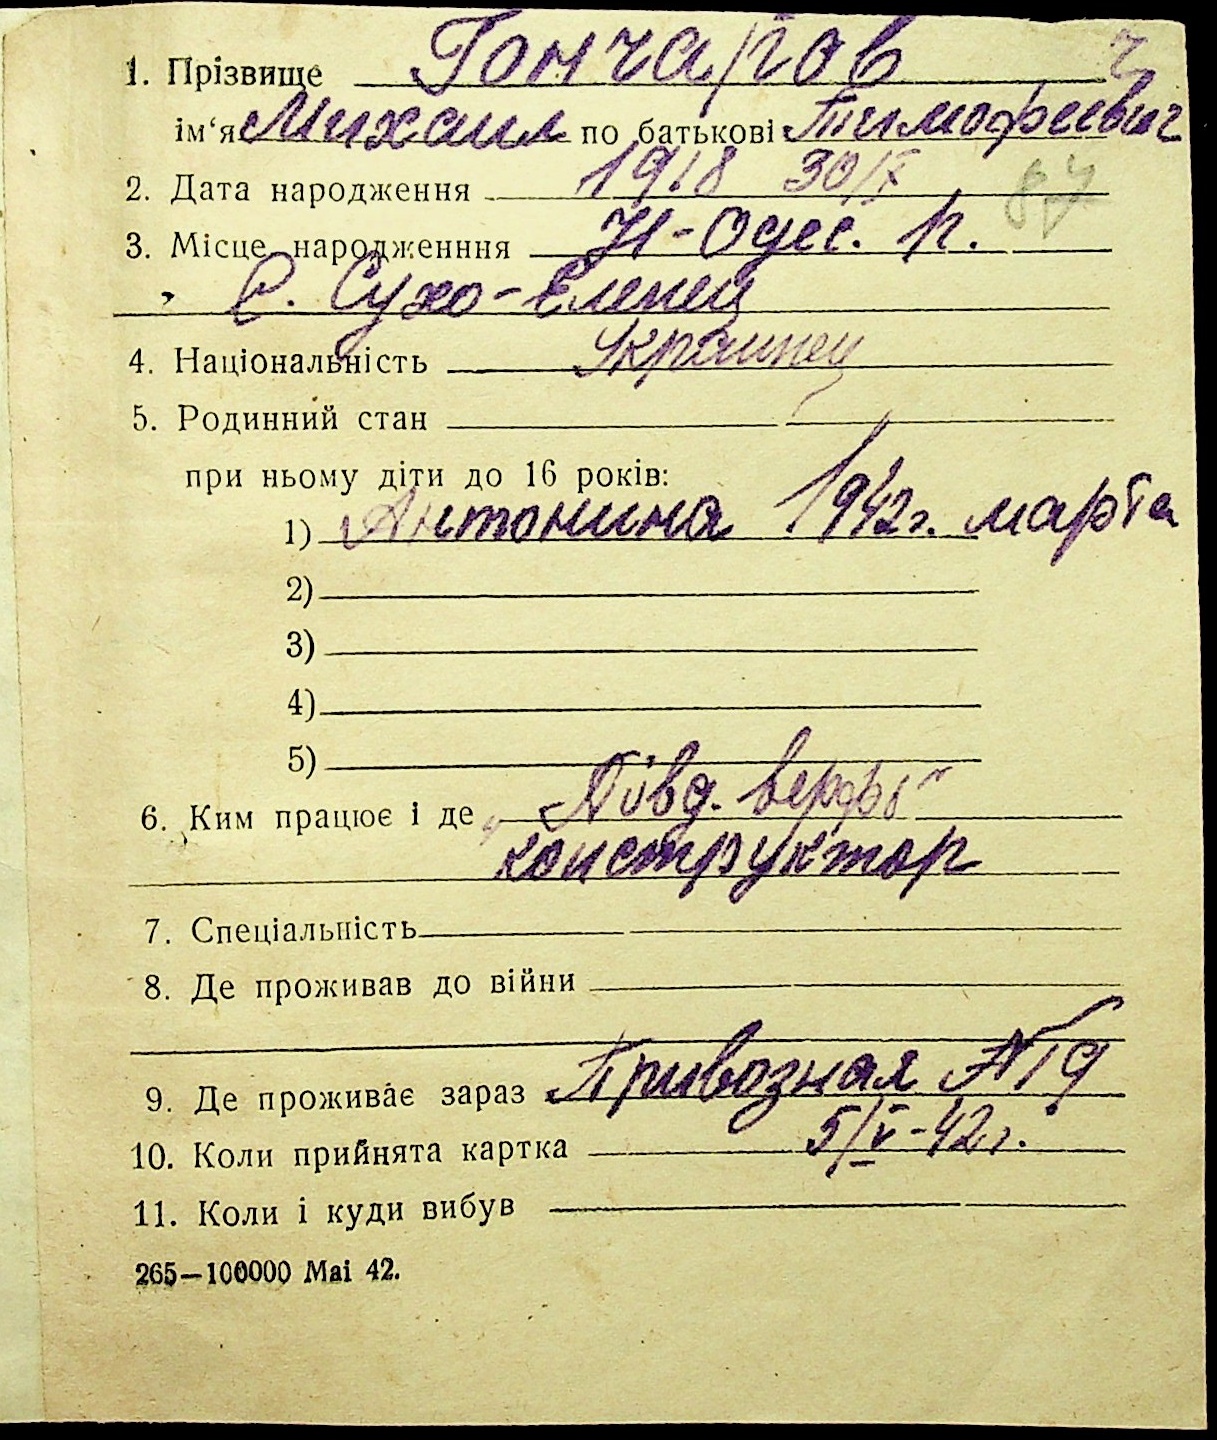 1. Прізвище Гончаров
ім‘я Михаил по батькові Тимофеевич
2. Дата народження 1918 30/X
3. Місце народженння Н-Одес. р.
С. Сухо-Еленец
4. Національність Украинец
5. Родинний стан
при ньому діти до 16 років:
1) Антонина 1942г. марта
2)
3)
4)
5)
6. Ким працює і де „Півд. верфь“
конструктор
7. Спеціальність
8. Де проживав до війни
9. Де проживає зараз Привозная №19
10. Коли прийнята картка 5/V-42г.
11. Коли і куди вибув
265—100000 Mai 42.